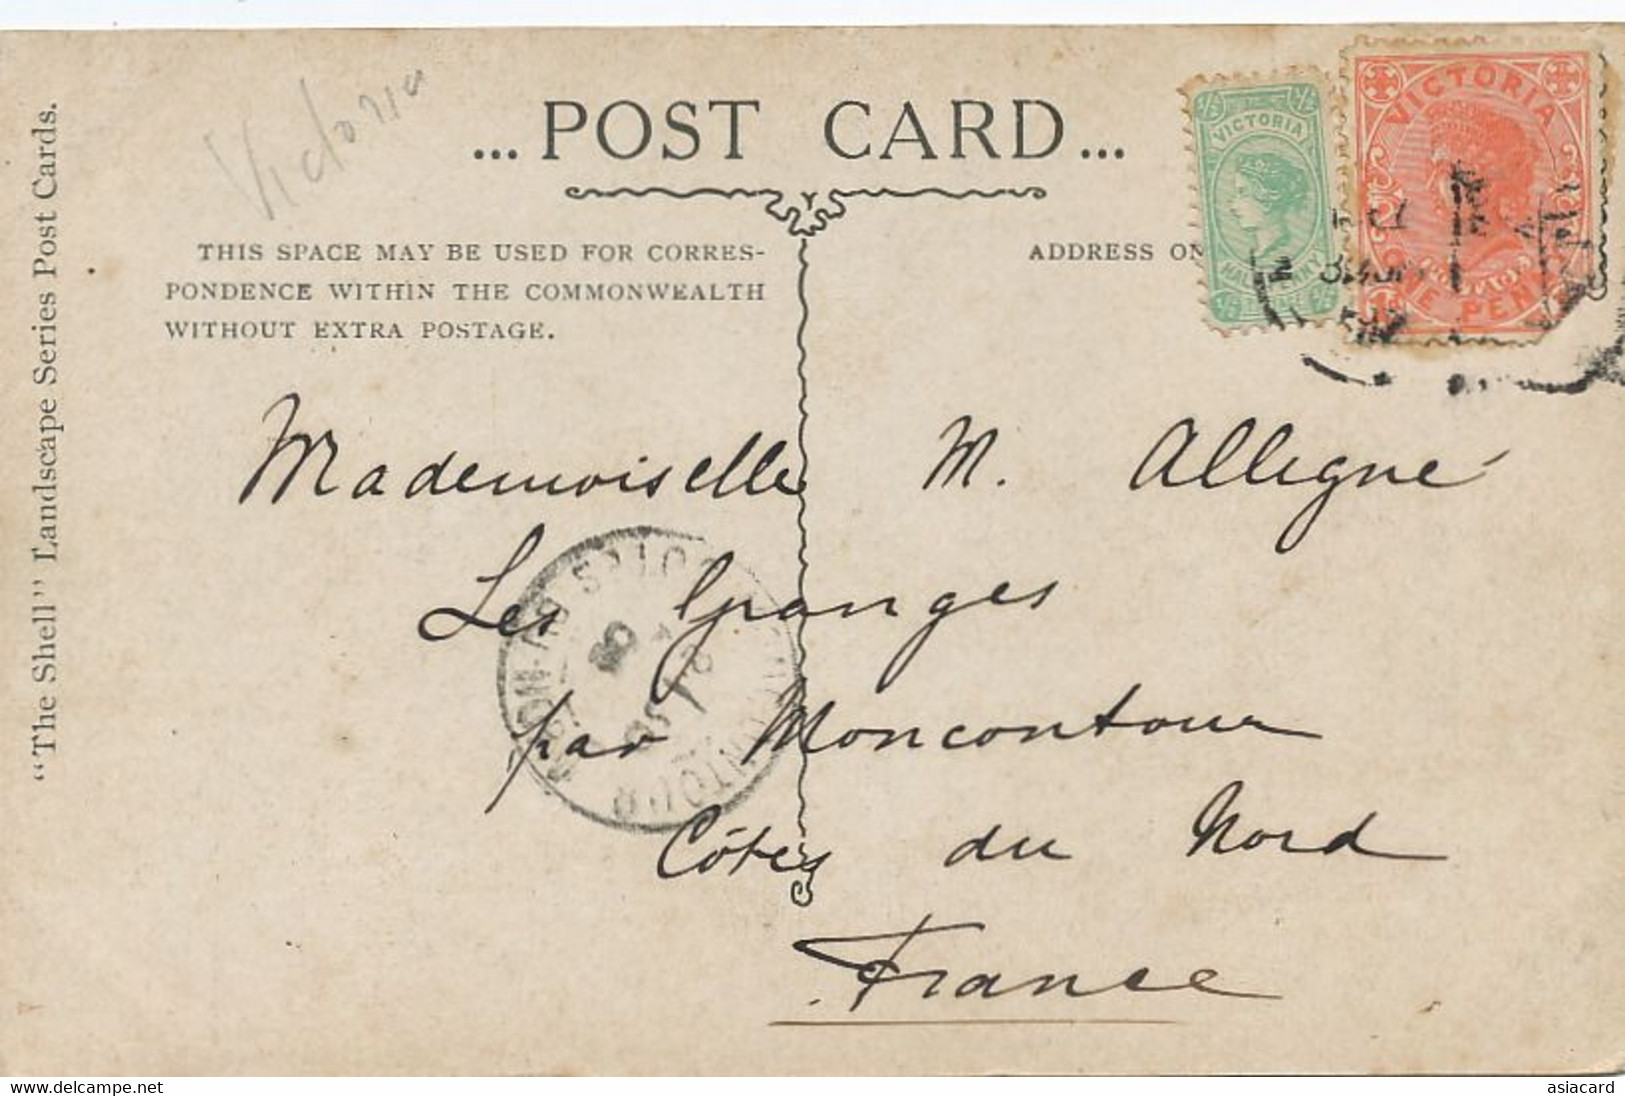 Victoria
... POST CARD ...
"The Shell" Landscape Series Post Cards.
THIS SPACE MAY BE USED FOR CORRES-
PONDENCE WITHIN THE COMMONWEALTH
WITHOUT EXTRA POSTAGE.
ADDRESS ON
½ ½
VICTORIA
HALF PENNY
½ ½
VICTORIA
ONE PENNY
Mademoiselle M. Alligné
Les Granges
par Moncontour
Côtes du Nord
France
delcampe.net
asiacard